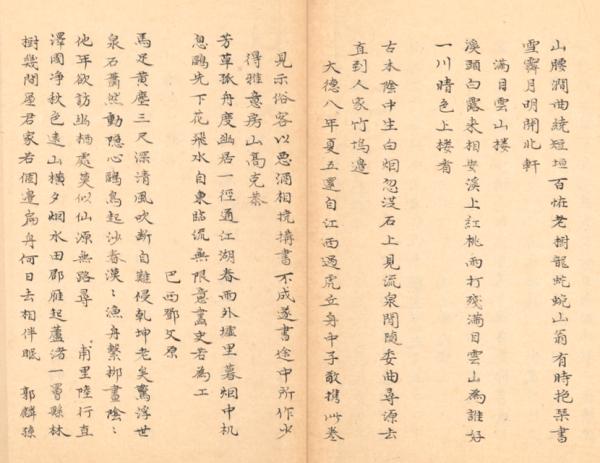 山腰澗曲繞短垣百怪老樹龍蛇蜿山翁有時抱琴書
雪霽月明開北軒
滿目雲山樓
溪頭白鷺來相安溪上紅桃雨打殘滿目雲山為誰好
一川晴色上樓看
古木陰中生白烟忽從石上見流泉閒隨委曲尋源去
直到人家竹塢邊
大德八年夏五還自江西過虎丘身中子敬携此卷
見示俗客以惡酒相撓揹書不成遂書途中所作少
得雅意房山高克恭
芳草孤舟度幽居一徑通江湖春雨外墟里暮烟中机
息鷗先下花飛水自東臨流無限意畫史若為工
巴西鄧文原
馬足黃塵三尺深清風吹斷自難侵乾坤老矣驚浮世
泉石蕭然動隱心鷗鳥起沙春漠〻漁舟繫柳晝陰〻
他年欲訪幽栖處莫似仙源無路尋　甫里陸行直
澤國淨秋色遠山橫夕烟水田郡雁起蘆渚一罾懸林
樹幾間屋君家若個邊扁舟何日去相伴眠　郭麟孫